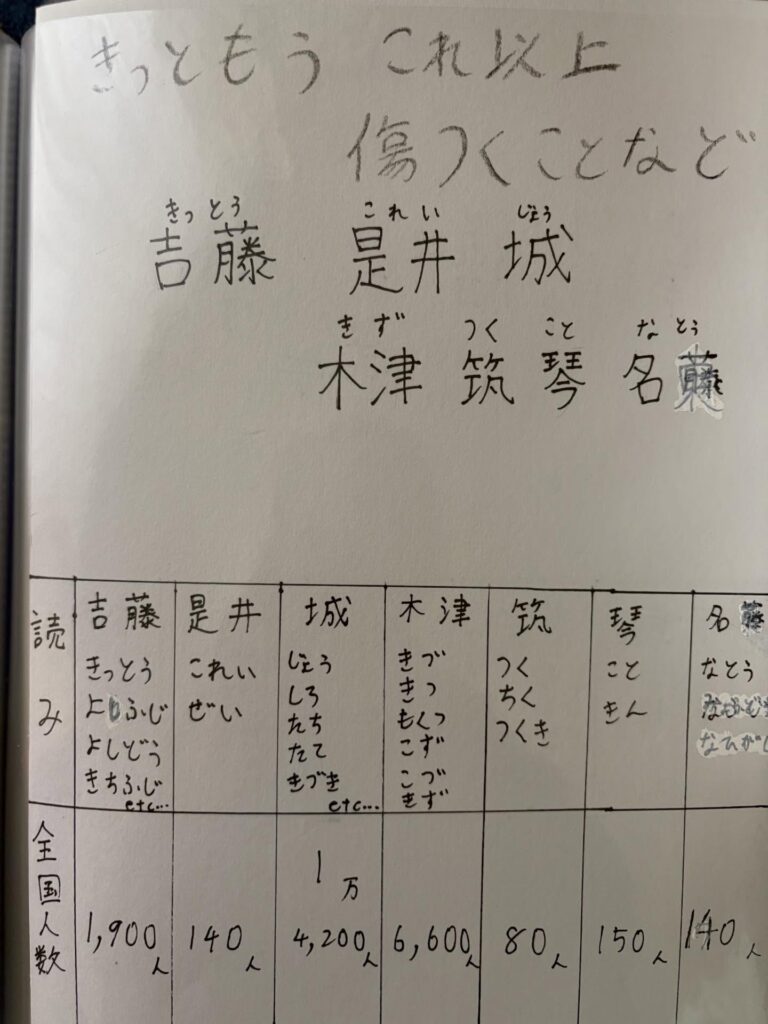 きっともう これ以上
傷つくことなど
きっとう これい じょう
吉藤 是井 城
きず つく こと なとう
木津 筑 琴 名藤
読み 吉藤 是井 城 木津 筑 琴 名藤
きっとう これい じょう きづ つく こと なとう
よしふじ ぜい しろ きつ ちく きん
よしどう たち もくつ つくき
きちふじ たて こず
etc… きづき こづ
etc… きず
全国人数 1,900人 140人 1万4,200人 6,600人 80人 150人 140人